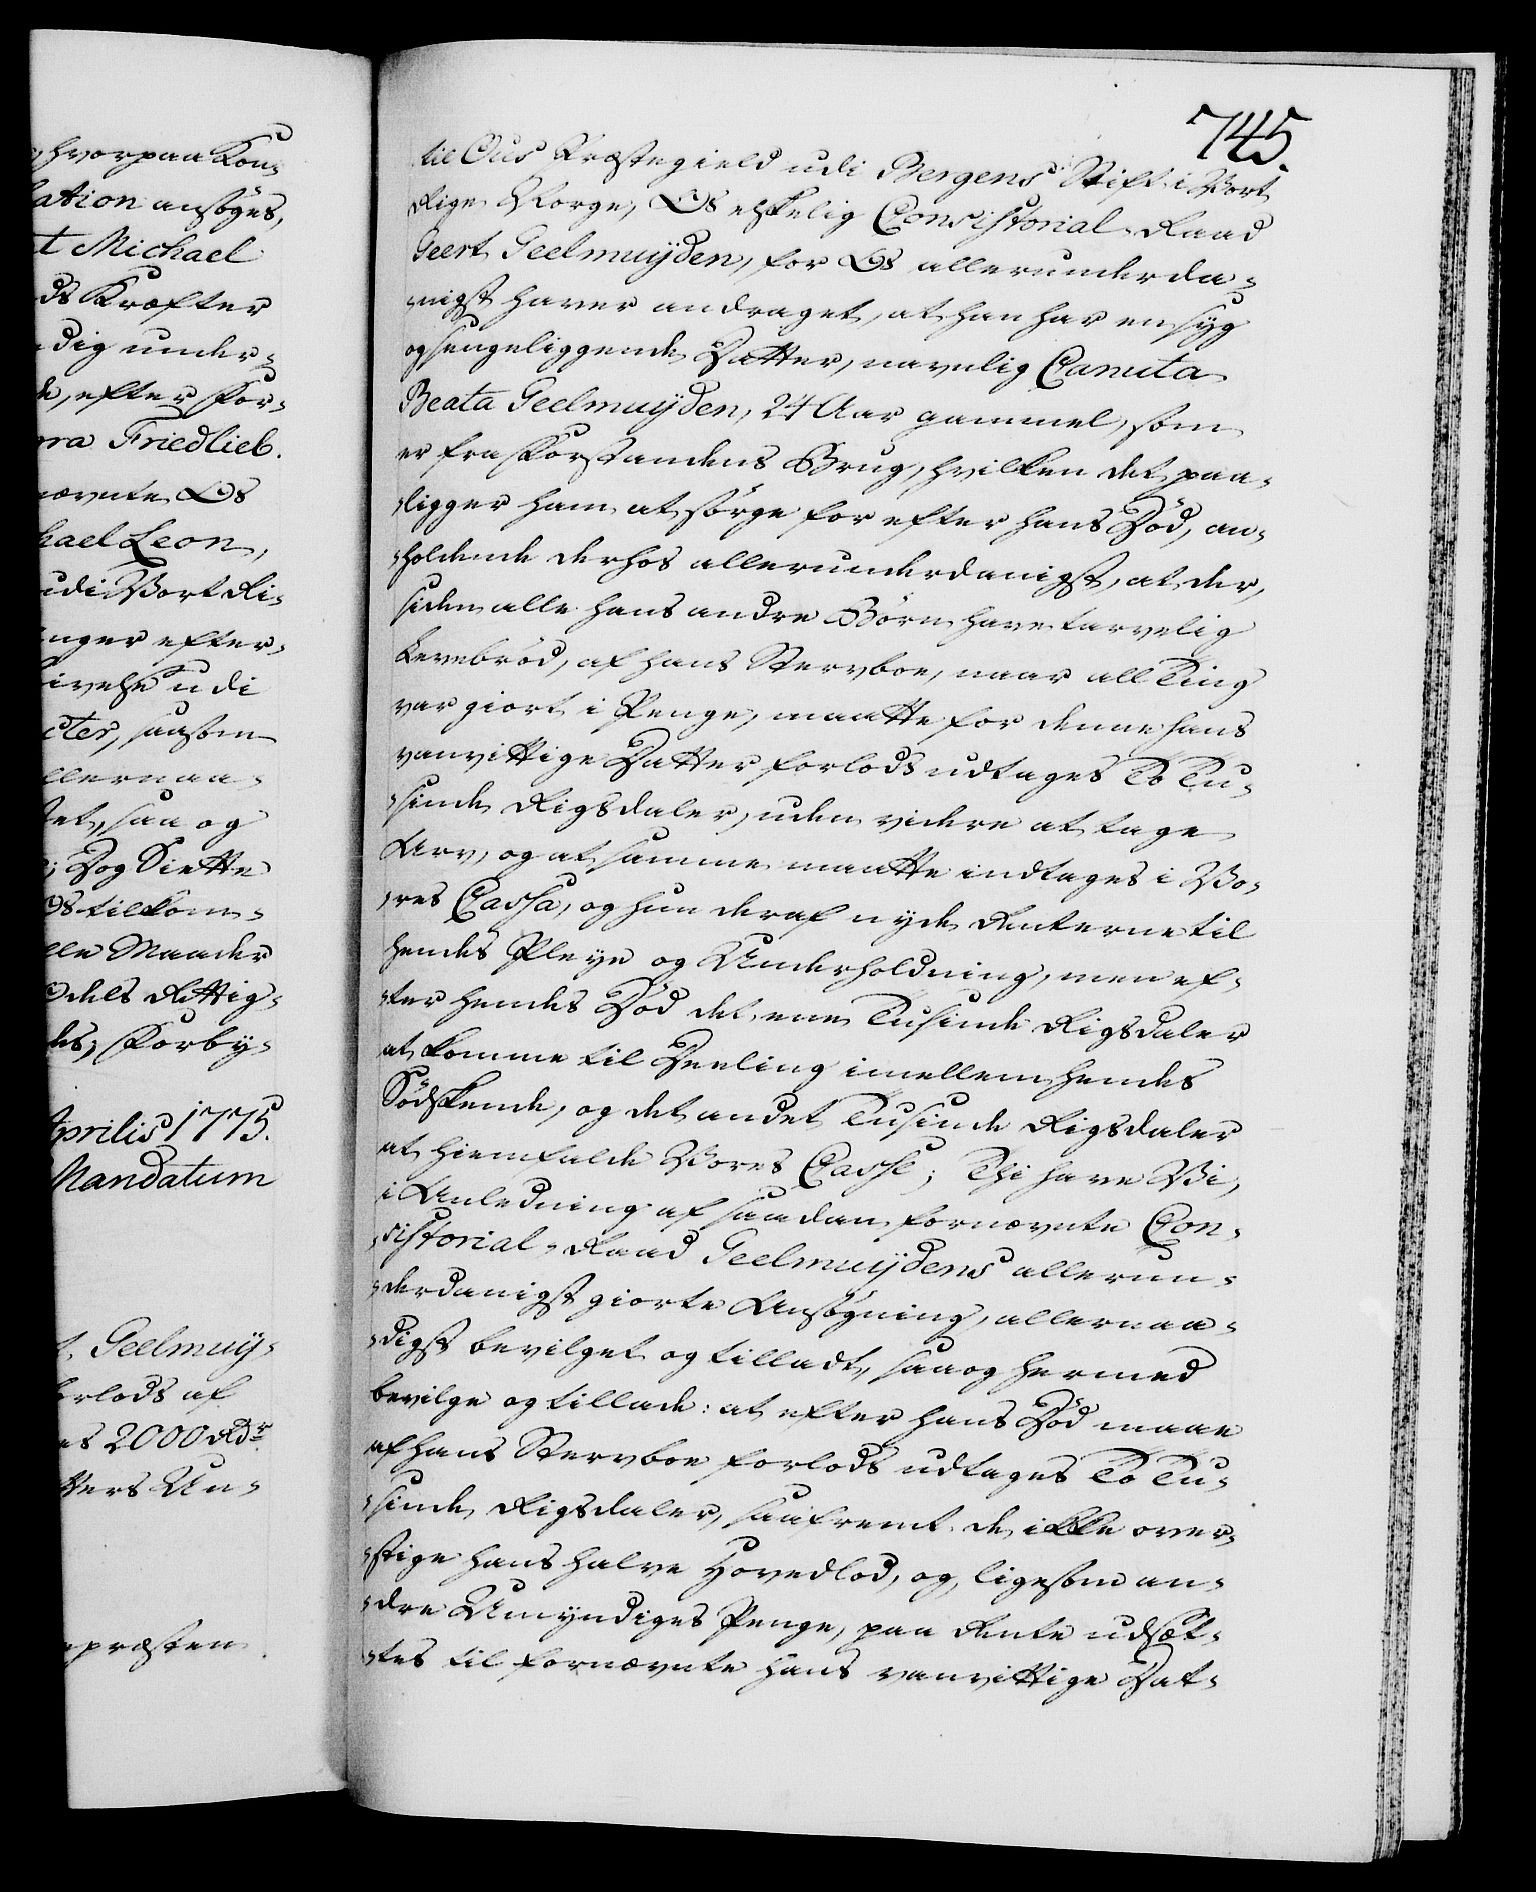 hvorpaa Kon-
ation ansöges,
t Michael
ds Kræfter
dig under-
de, efter For-
ra Friedlieb.
nævnte Os
hael Leon,
udi Vort Ri-
nger efter-
udi
cter, saasom
llernaa-
det, saa og
; Dog Siette
Os tilkom-
lle Maader
dels Rettig-
des, Forby-
Aprilis 1775.
Mandatum
t. Geelmuy-
orlods af
es 2000 Rdr.
tters Un-
epræsten
745.
til Ous Præstegield udi Bergens Stift i Vort
Rige Norge, Os elskelig Consistorial-Raad
Geert Geelmuÿden, for Os allerunderda-
nigst haver andraget, at han har en syg
og sengeliggende Datter, navnlig Canuta
Beata Geelmuÿden, 24 Aar gammel, som
er fra Forstandens Brug, hvilken det paa-
ligger ham at sörge for efter hans Död, an-
holdende derhos allerunderdanigst, at der,
siden alle hans andre Börn have tarvelig
Levebröd, af hans Stervboe, naar all Ting
var giort i Penge, maatte for denne hans
vanvittige Datter forlods udtages To Tu-
sinde Rigsdaler, uden videre at tage
Arv, og at samme maatte indtages i Vo-
res Cassa, og hun deraf nyde Renterne til
hendes Pleye og Underholdning, men ef-
ter hendes Död det ene Tusinde Rigsdaler
at komme til Deeling imellem hendes
Södskende, og det andet Tusinde Rigsdaler
at hiemfalde Vores Casse; Thi have Vi,
i Anledning af saadan fornævnte Con-
sistorial-Raad Geelmuÿdens allerun-
derdanigst giorte Ansögning, allernaa-
digst bevilget og tilladt, saa og hermed
bevilge og tillade: at efter hans Död maae
af hans Stervboe forlods udtages To Tu-
sinde Rigsdaler, saafremt de ikke over-
stige hans halve Hovedlod, og, ligesom an-
dre Umyndiges Penge, paa Rente udsæt-
tes til fornævnte hans vanvittige Dat-